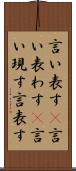 言い表す言
い表わす言
い現す言表す